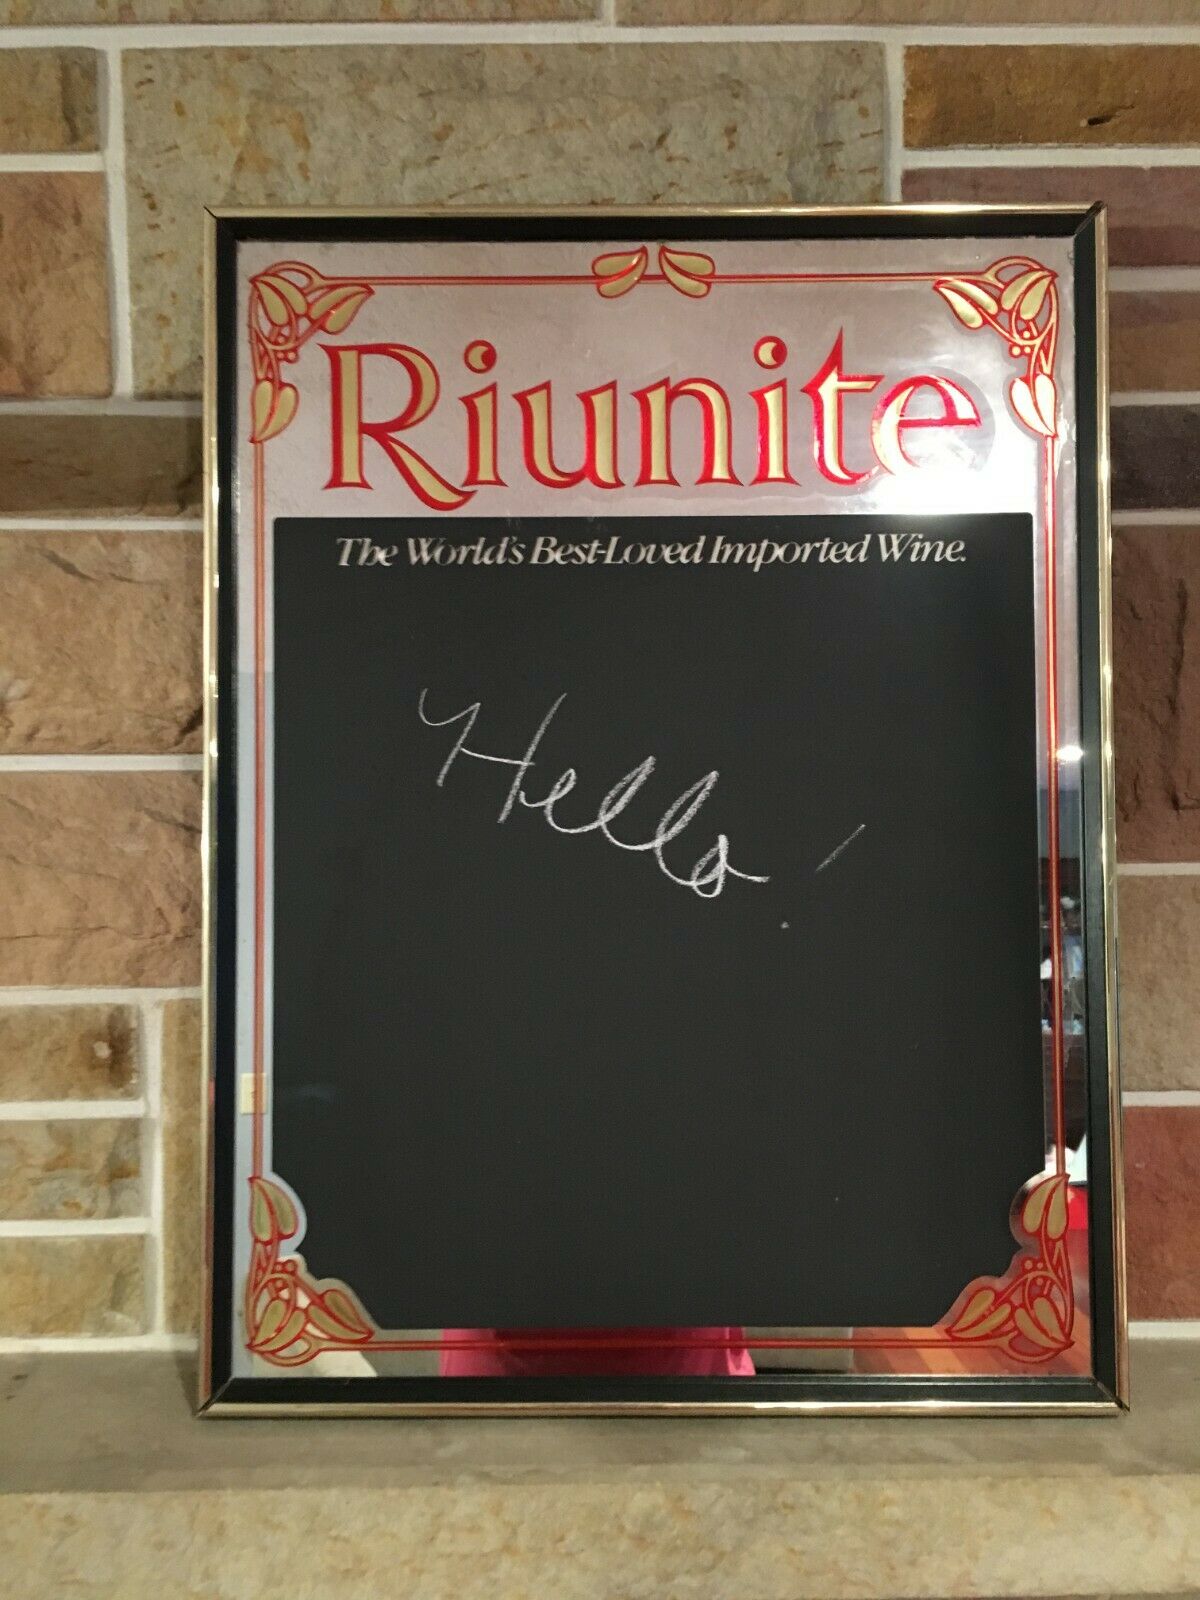 Riunite
The World's Best-Loved Imported Wine.
Hello!